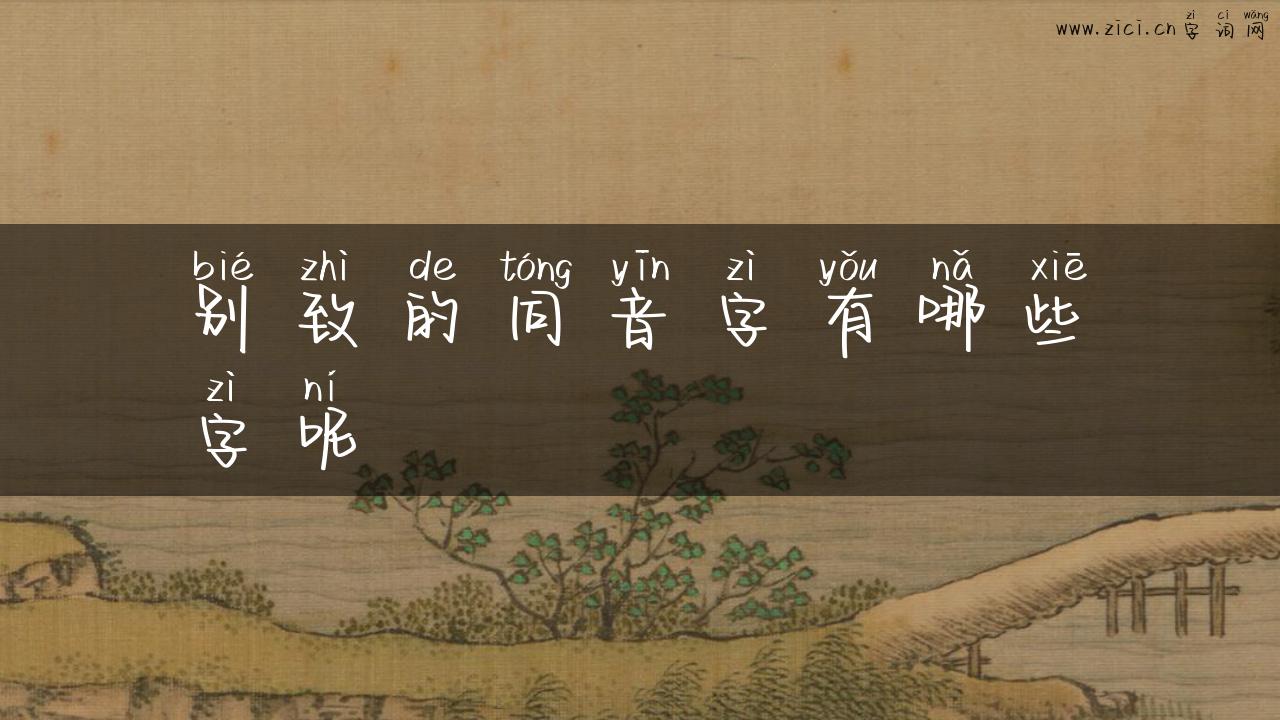 zì cí wǎng
www.zici.cn 字 词 网
bié zhì de tóng yīn zì yǒu nǎ xiē
别 致 的 同 音 字 有 哪 些
zì ní
字 呢